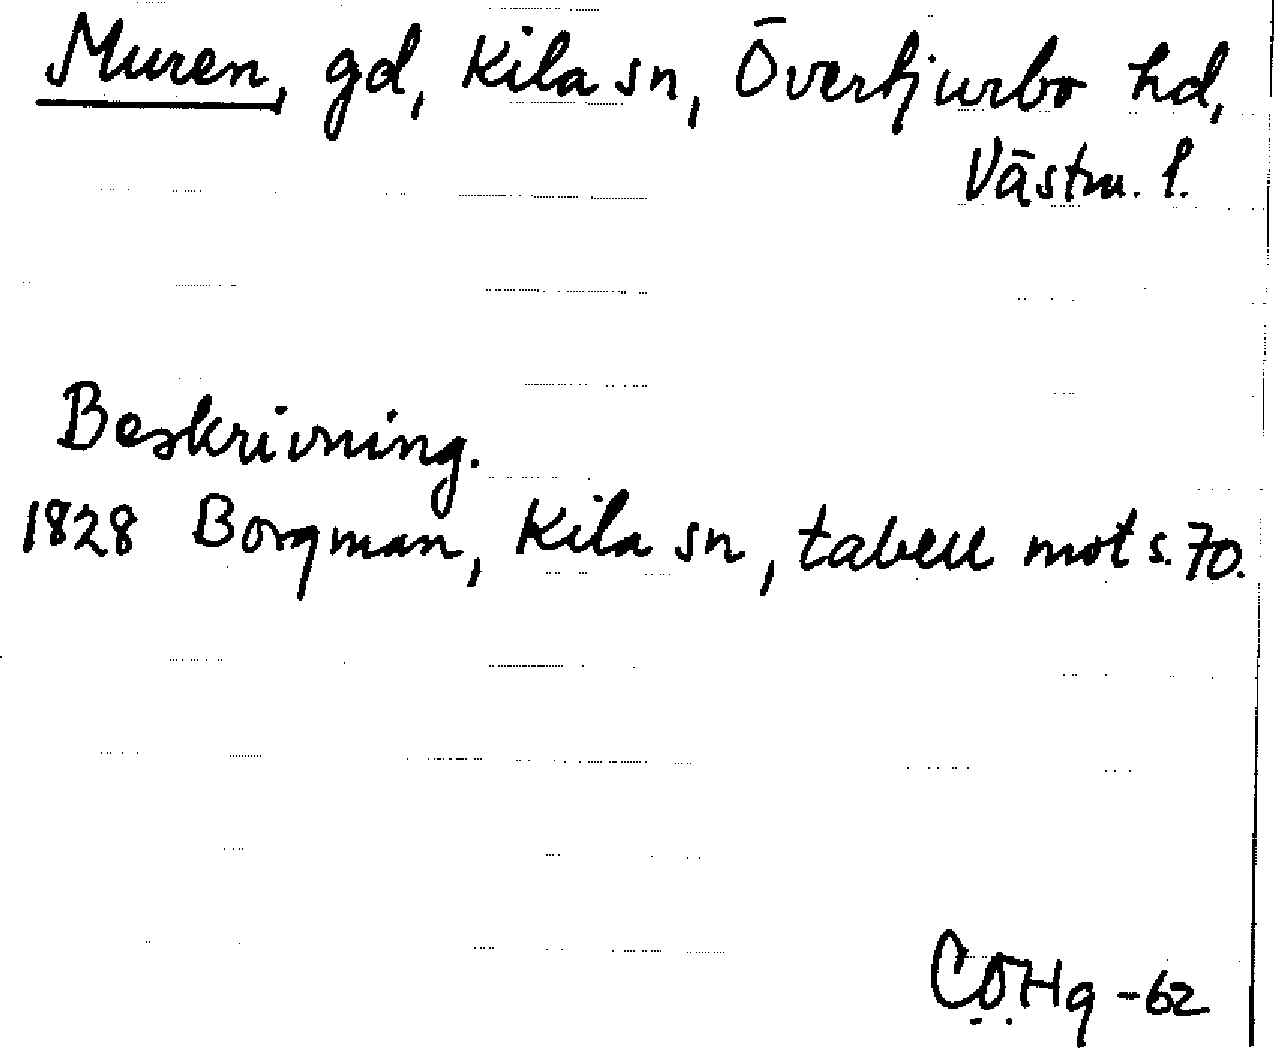 Muren, gd, Kila sn, Övertjurbo hd,
Västm. l.
Beskrivning.
1828 Borgman, Kila sn, tabell mot s. 70.
CÖHg -62